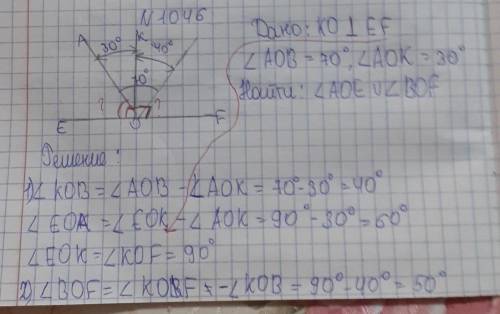 N 1046
Дано: KO ⊥ EF
∠AOB = 70°, ∠AOK = 30°
Найти: ∠AOE и ∠BOF
A 30° K 40°
70°
? ?
E O F
Решение:
1) ∠KOB = ∠AOB - ∠AOK = 70° - 30° = 40°
∠EOA = ∠EOK - ∠AOK = 90° - 30° = 60°
∠EOK = ∠KOF = 90°
2) ∠BOF = ∠KOF = -∠KOB = 90° - 40° = 50°